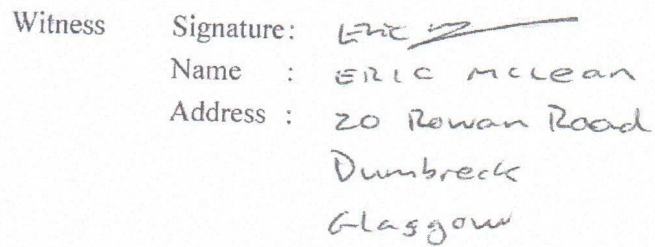 Witness Signature: Eric
Name : ERIC McLean
Address : 20 Rowan Road
Dumbreck
Glasgow